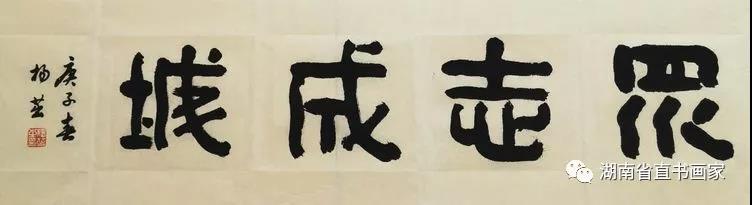 眾志成城
庚子春
杨
湖南省直书画家